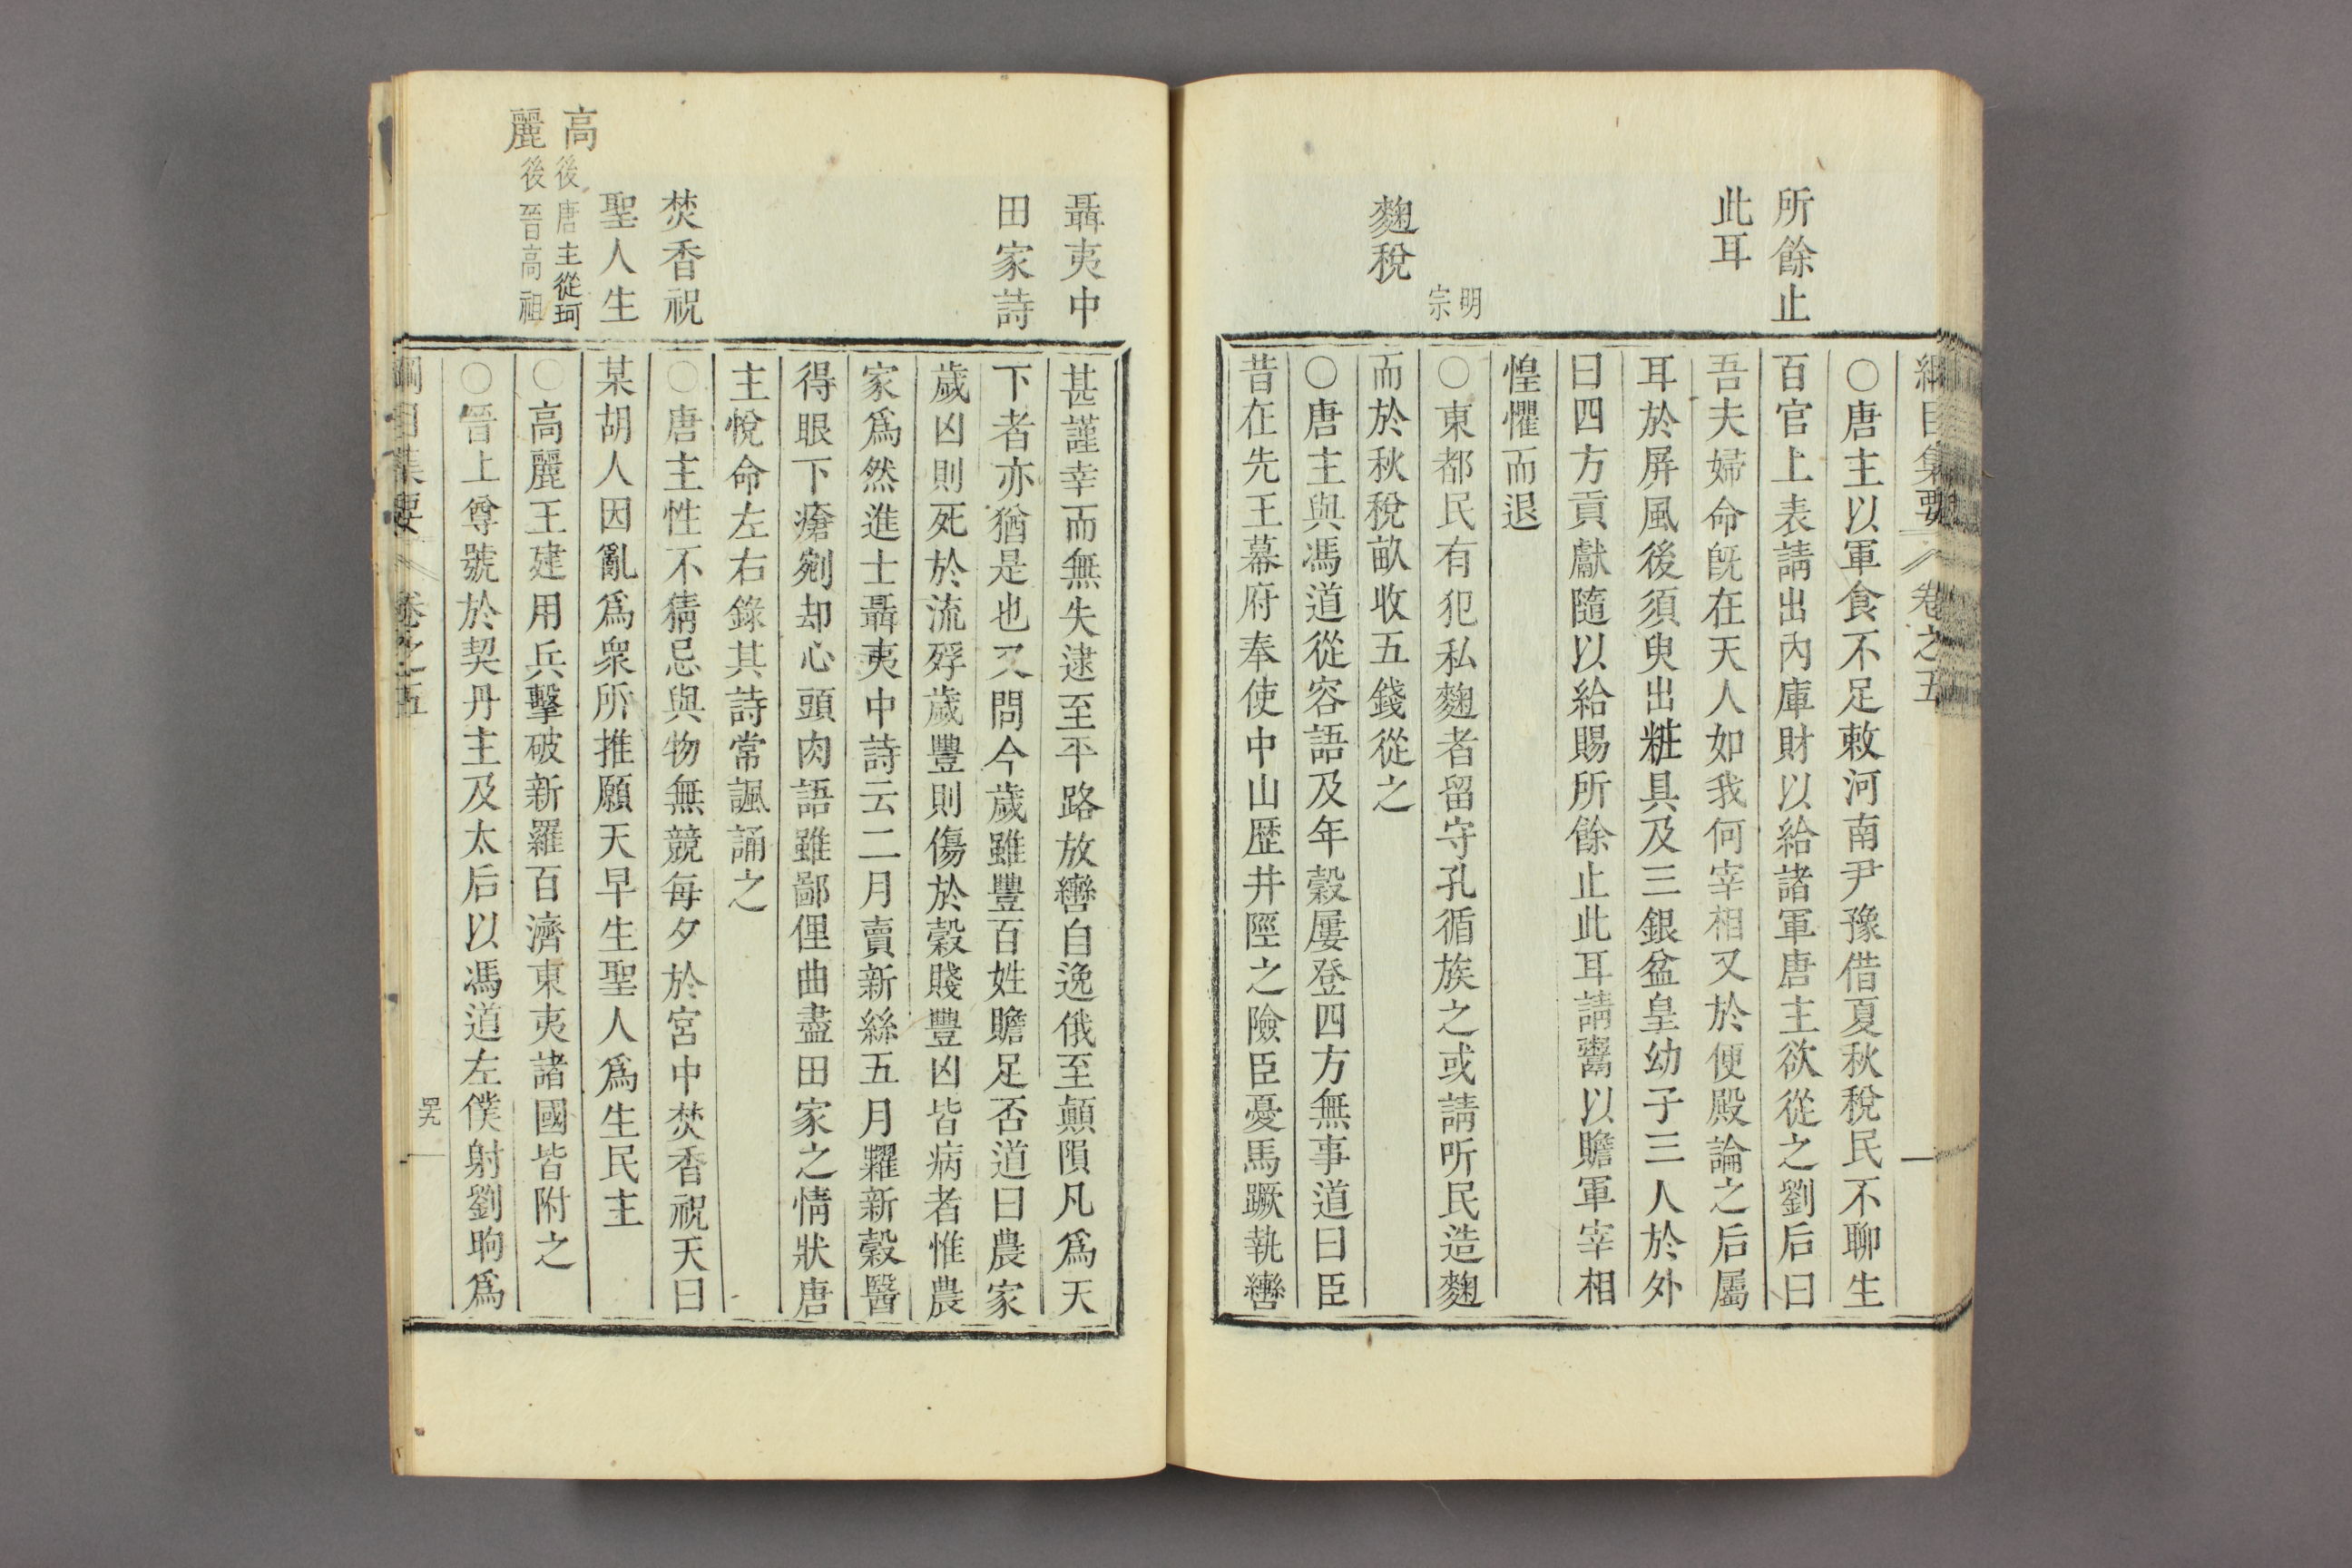 綱目集要 卷之五
所餘止
此耳
明
宗
麴稅
○唐主以軍食不足敕河南尹豫借夏秋稅民不聊生
百官上表請出內庫財以給諸軍唐主欲從之劉后曰
吾夫婦命旣在天人如我何宰相又於便殿論之后屬
耳於屏風後須臾出粧具及三銀盆皇幼子三人於外
曰四方貢獻隨以給賜所餘止此耳請鬻以贍軍宰相
惶懼而退
○東都民有犯私麴者留守孔循族之或請听民造麴
而於秋稅畝收五錢從之
○唐主與馮道從容語及年穀屢登四方無事道曰臣
昔在先王幕府奉使中山歷井陘之險臣憂馬蹶執轡
聶夷中
田家詩
焚香祝
聖人生
高
麗
後唐主從珂
後晉高祖
甚謹幸而無失逮至平路放轡自逸俄至顛隕凡爲天
下者亦猶是也又問今歲雖豐百姓贍足否道曰農家
歲凶則死於流殍歲豐則傷於穀賤豐凶皆病者惟農
家爲然進士聶夷中詩云二月賣新絲五月糶新穀醫
得眼下瘡剜却心頭肉語雖鄙俚曲盡田家之情狀唐
主悅命左右錄其詩常諷誦之
○唐主性不猜忌與物無競每夕於宮中焚香祝天曰
某胡人因亂爲衆所推願天早生聖人爲生民主
○高麗王建用兵擊破新羅百濟東夷諸國皆附之
○晉上尊號於契丹主及太后以馮道左僕射劉昫爲
綱目集要 卷之五
四九